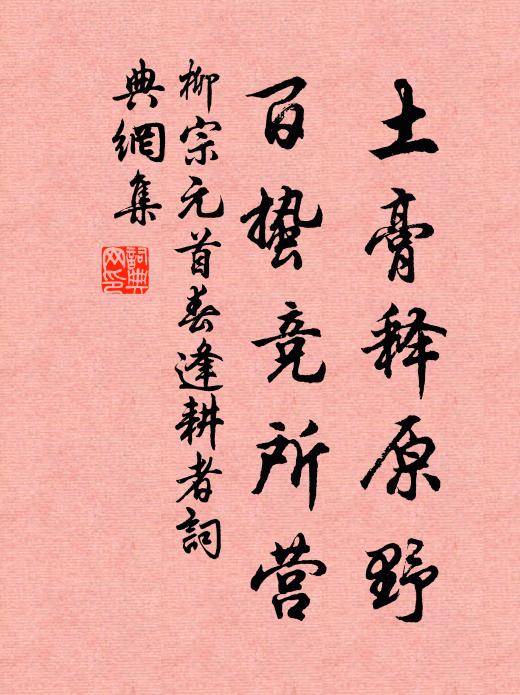 土膏释原野
百蛰竞所营
柳宗元首春逢耕者詞
典網集
詞典
网印